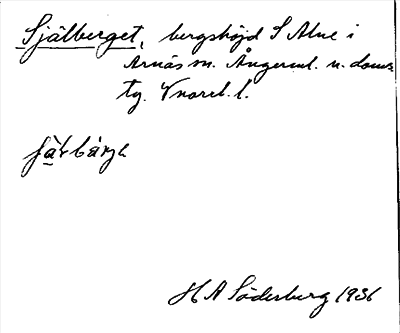 Själberget, bergshöjd S Alne i
Arnäs sn. Ångerml. n. doms.
tg. Vnorrl. l.
H A Söderberg 1936